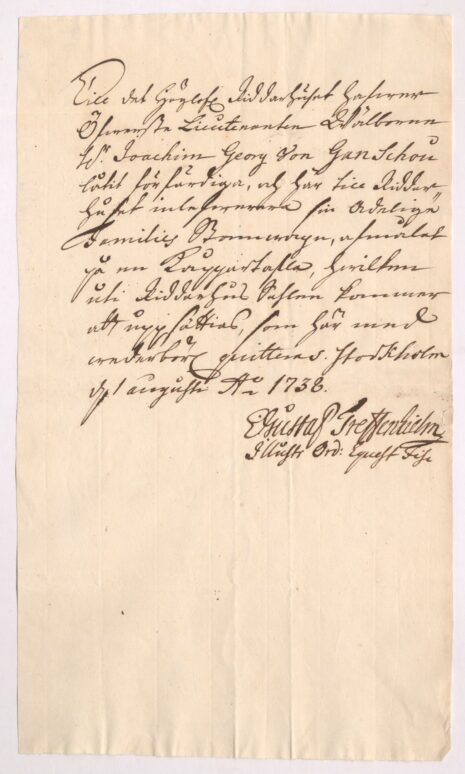 Till det Höglofl Ridderhuset hafwer
Öfwerste Lieutenanten Wälborne
Hr. Joachim Georg Von Ganschou
låtit förfärdiga, och här till Ridder-
huset inleverera sin Adelige
Families Stamwapn, afmålat
på en KopparTafla, hwilken
uti Ridderhus Sahlen kommer
att uppsättias, som här med
wederbörl quitteras. Stockholm
d. 1 augusti Ao 1738.
Gustaf Treffenhielm
Illustr Ord: Equest Fisc